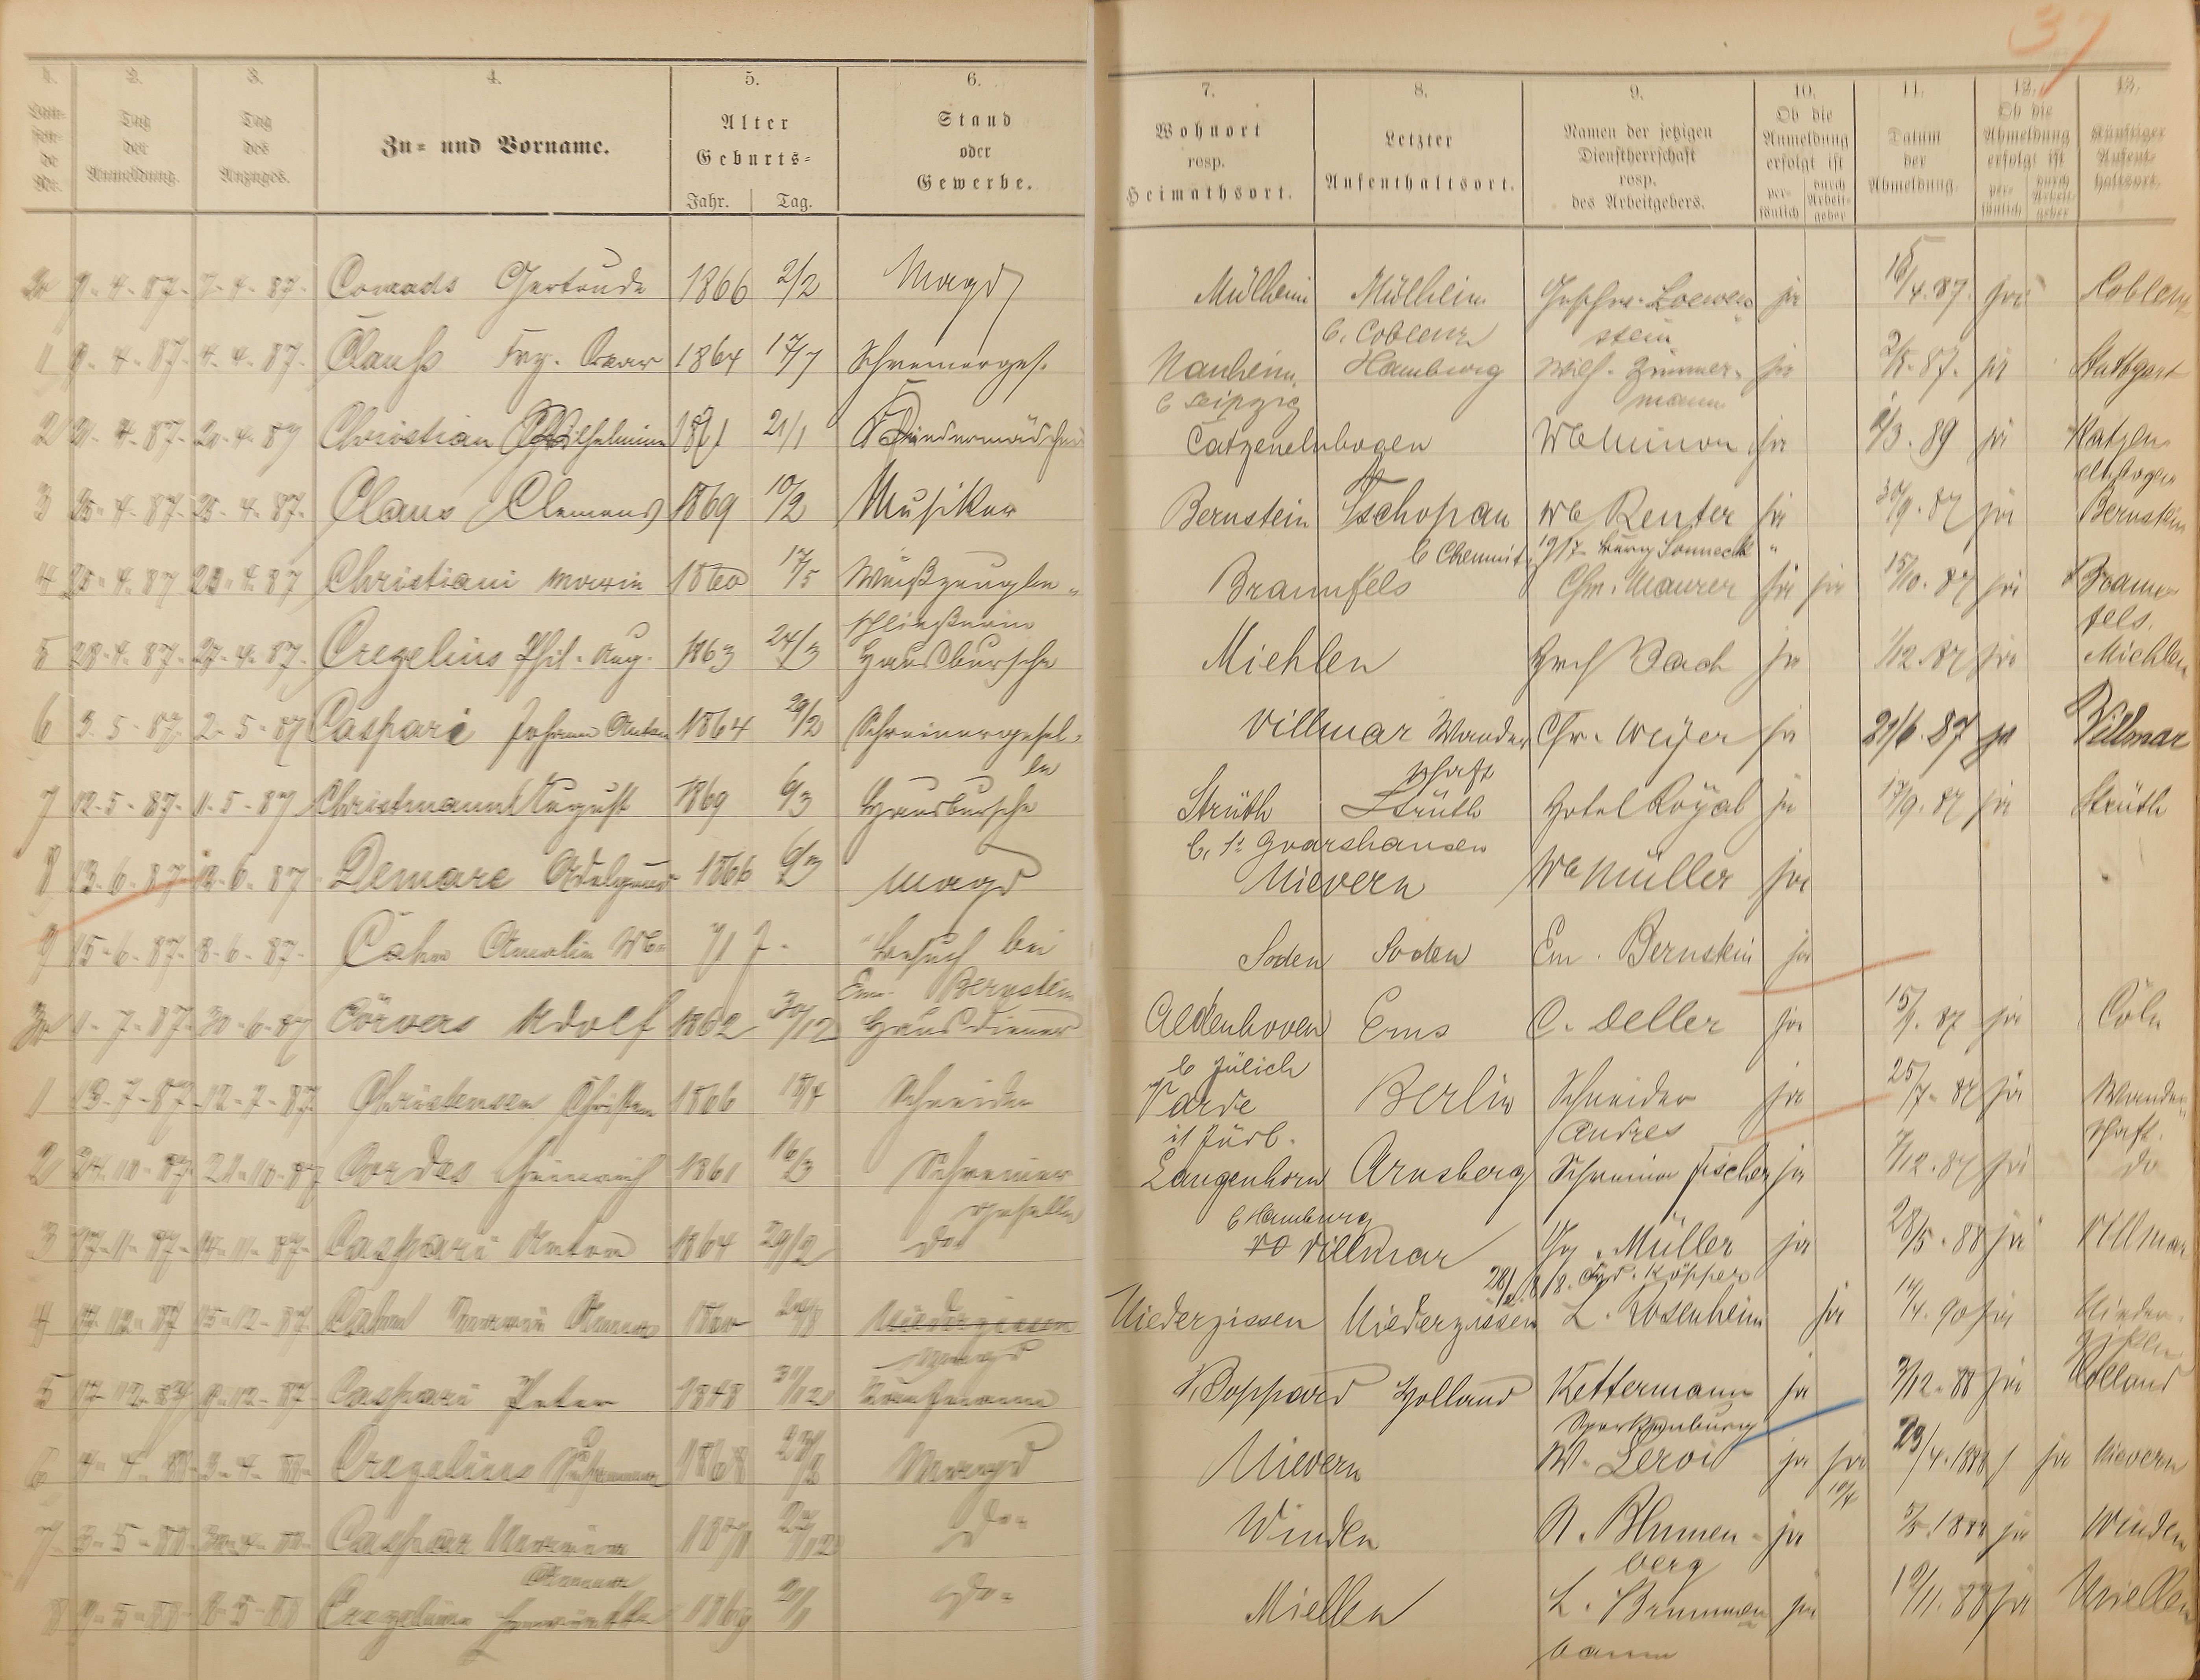 37
1. 2. 3. 4. 5. 6. 7. 8. 9. 10. 11. 12. 13.
Laufende Nr. Tag der Anmeldung. Tag des Anzuges. Zu- und Vorname. Alter Geburts- Jahr. Tag. Stand oder Gewerbe. Wohnort resp. Heimathsort. Letzter Aufenthaltsort. Namen der jetzigen Dienstherrschaft resp. des Arbeitgebers. Ob die Anmeldung erfolgt ist persönlich durch Arbeitgeber Datum der Abmeldung. Ob die Abmeldung erfolgt ist persönlich durch Arbeitgeber Künftiger Aufenthaltsort.
20 9.4.87. 7.4.87. Conrads Gertrude 1866 2/2 Magd Mülheim Mülheim Loewen- ja 16/4.87. ja Coblenz
b. Coblenz stein
1 9.4.87. 4.4.87. Clauß Oscar 1864 17/7 Schreinerges. Nauheim Hamburg Wilh. Zimmer- ja 2/5.87. ja Stuttgart
b Leipzig mann
2 21.4.87. 21.4.87 Christian Wilhelmine 1871 21/1 Kindermädchen Catzenelnbogen Wb Minor ja 2/3.89 ja Katzen-
elnbogen
3 25.4.87. 25.4.87. Claus Clemens 1869 10/2 Musiker Bernstein Zschopau Wb Reuter ja 30/9.87 ja Bernstein
b Chemnitz 19/7 Burg Sonneck "
4 25.4.87 23.4.87 Christiani Marie 1860 17/5 Weißzeugbe- Braunfels Chr. Maurer ja ja 15/10.87 ja Braun-
schließerin fels.
5 28.4.87. 27.4.87. Cregelius Phil. Aug. 1863 24/3 Hausbursche Miehlen Bach ja 1/12.87 ja Miehlen
6 3.5.87. 2.5.87 Caspari Johann Anton 1864 29/2 Schreinergesel- Villmar Wander- Chr. Weyer ja 21/6.87 ja Villmar
le schaft
7 12.5.87. 11.5.87 Christmann August 1869 6/3 Hausbursche Strüth Strüth Hotel Royal ja 17/9.87 ja Strüth
b. St Goarshausen
8 13.6.87 12.6.87 Demare Adelgund 1866 6/3 Magd Nievern Wb Müller ja
9 15.6.87. 8.6.87. Cahn Amalie Wb. 71 J. Besuch bei Soden Soden Em. Bernstein ja
Em. Bernstein
30 1.7.87. 30.6.87 Cörvers Adolf 1862 30/12 Hausdiener Aldenhoven Ems C. Deller ja 15/9.87 ja Cöln
b Jülich
1 13.7.87. 12.7.87. Christensen Christen 1866 18/4 Schneider Varde Berlin Schneider ja 25/7.87 ja Wander-
in Jütl. Andres schaft.
2 24.10.87. 22.10.87 Cordes Heinrich 1861 16/3 Schreiner Langenhorn Arnsberg Schreiner Fischer ja 7/12.87 ja do
geselle b Hamburg
3 17.11.87. 14.11.87. Caspari Anton 1864 29/2 do. Villmar Müller ja 28/5.88 ja Villmar
28/2.88. Küpper
4 17.12.87 15.12.87. Cahn Anna Niederzissen Niederzissen Niederzissen L. Rosenheim ja 14/4.90 ja Nieder-
Magd zissen
5 17.12.87 9.12.87. Caspari Peter 1848 31/12 Kaufmann Boppard Holland Kettermann ja 3/12.88 ja Holland
Sporkenburg
6 4.4.88. 3.4.88. Cregelius Susanna 1868 23/2 Magd Nievern W. Leroi ja ja 23/4.1888 ja Nievern
10/4
7 3.5.88. 30.4.88. Caspar Maria 1871 27/12 do. Winden N. Blumen- ja 3/5.1888 ja Winden
Anna berg
8 9.5.88. 8.5.88 Cregelius Henriette 1869 2/1 do. Miellen L. Brunnen- ja 10/11.88 ja Miellen